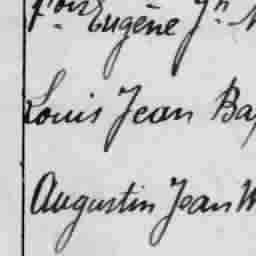 Eugène Jn
Louis Jean Ba
Augustin Jean